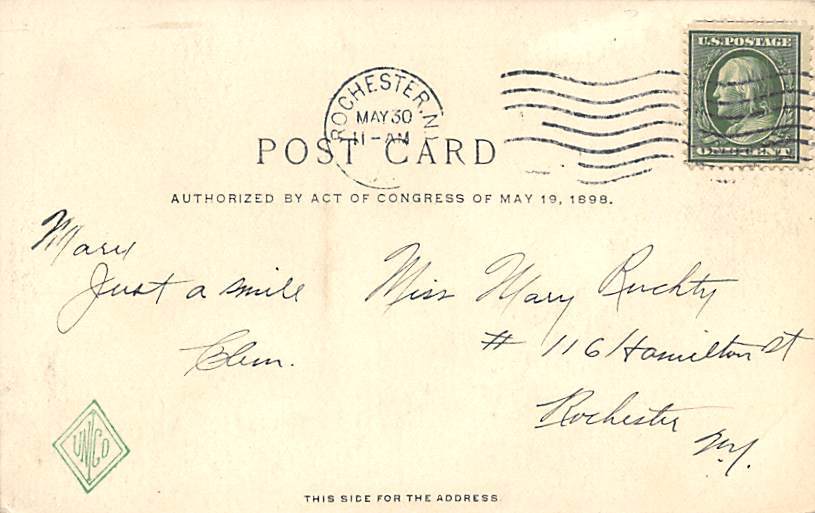 U.S. POSTAGE
ONE CENT
ROCHESTER, N.Y.
MAY 30
11-AM
POST CARD
AUTHORIZED BY ACT OF CONGRESS OF MAY 19, 1898.
Mary
Just a smile
Clem.
Miss Mary Ruchty
# 116 Hamilton St
Rochester
N.Y.
UNICO
THIS SIDE FOR THE ADDRESS.